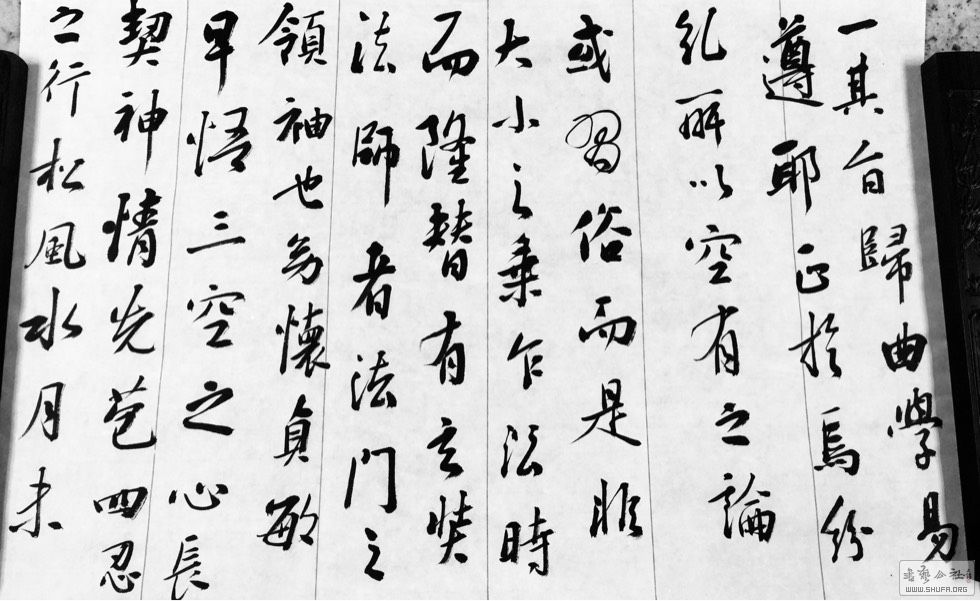 一其旨歸曲學易
遵耶正於焉紛
糺所以空有之論
或習俗而是非
大小之乘乍沿時
而隆替有玄奘
法師者法門之
領袖也幼懷貞敏
早悟三空之心長
契神情先苞四忍
之行松風水月未
书艺公社
WWW.SHUFA.ORG